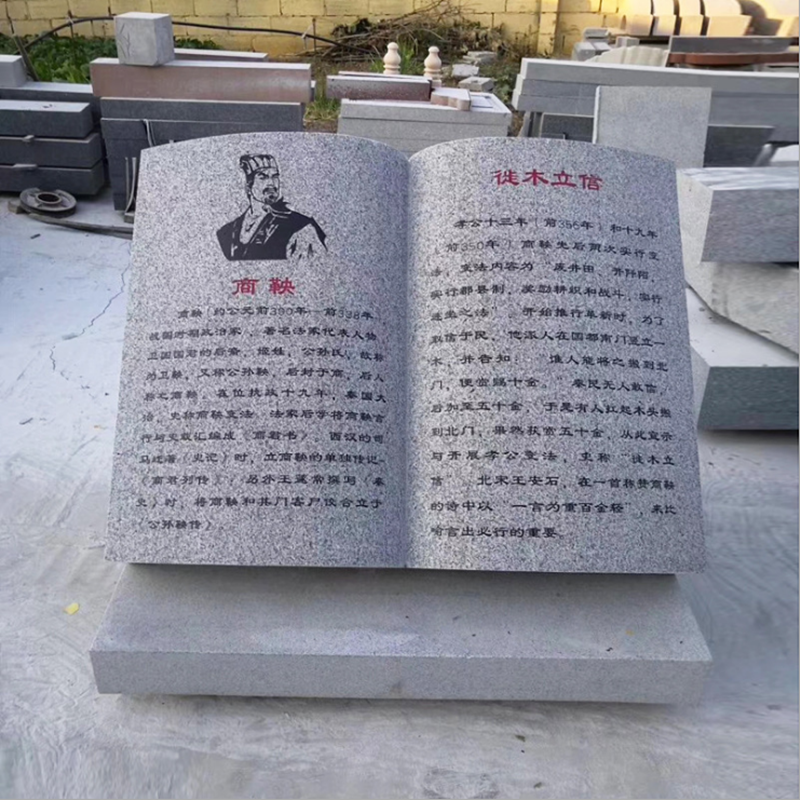 商鞅
商鞅(约公元前390年—前338年
战国时期政治家、著名法家代表人物
卫国国君的后裔，姬姓，公孙氏，故称
为卫鞅，又称公孙鞅，后封于商，后人
称之商鞅 在位执政十九年，秦国大
治，史称商鞅变法 法家后学将商鞅言
行与文献汇编成《商君书》，西汉的司
马迁著《史记》时，立商鞅的单独传记—
《商君列传》，另外王蘧常撰写《秦
史》时，将商鞅和其门客尸佼合立于
《公孙鞅传》
徙木立信
孝公十三年(前356年)和十九年
(前350年)商鞅先后两次实行变
法，变法内容为“废井田、开阡陌
实行郡县制，奖励耕织和战斗，实行
连坐之法”。开始推行革新时，为了
取信于民，他派人在国都南门竖立一
木，并告知：“谁人能将之搬到北
门，便赏赐十金。”秦民无人敢信，
后加至五十金，于是有人扛起木头搬
到北门，果然获赏五十金，从此宣示
与开展孝公变法，史称“徙木立
信”。北宋王安石，在一首称赞商鞅
的诗中以“一言为重百金轻”，来比
喻言出必行的重要